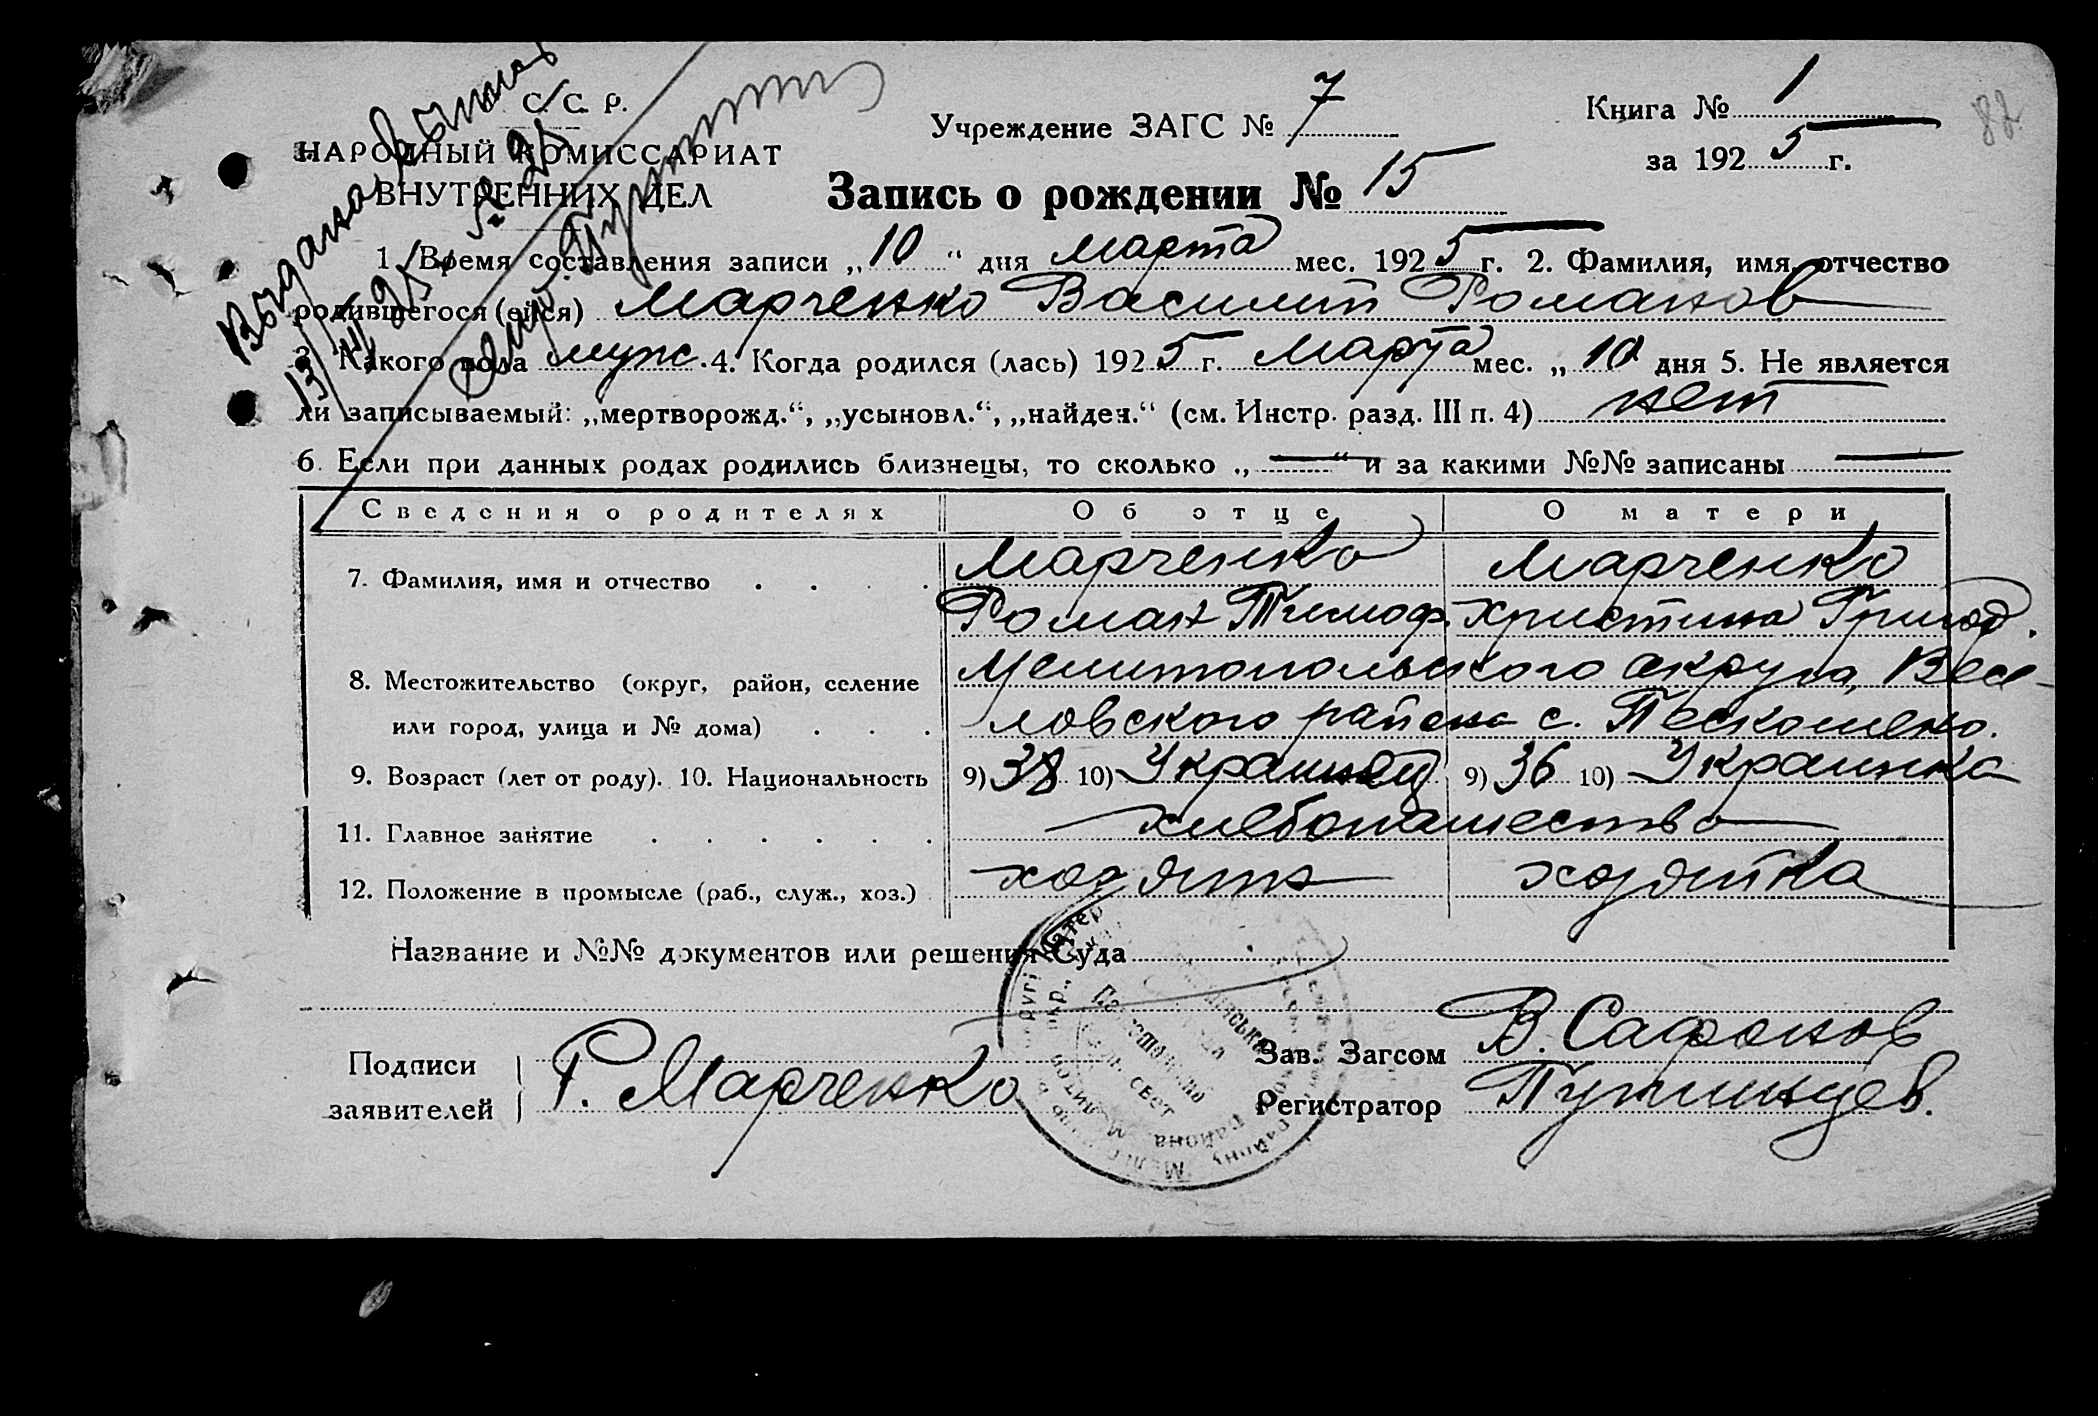 С.С.Р.
НАРОДНЫЙ КОМИССАРИАТ
ВНУТРЕННИХ ДЕЛ
Учреждение ЗАГС № 7
Книга № 1
за 1925 г.
82
Запись о рождении № 15
1. Время составления записи „10“ дня марта мес. 1925 г. 2. Фамилия, имя, отчество
родившегося (ейся) Марченко Василий Романов
3. Какого пола муж. 4. Когда родился (лась) 1925 г. Марта мес. „10 дня 5. Не является
ли записываемый: „мертворожд.“, „усыновл.“, „найден.“ (см. Инстр. разд. III п. 4) нет
6. Если при данных родах родились близнецы, то сколько „—“ и за какими №№ записаны —
Сведения о родителях Об отце О матери
7. Фамилия, имя и отчество Марченко Марченко
Роман Тимоф. Христина Григор.
8. Местожительство (округ, район, селение Мелитопольского округа, Весе-
или город, улица и № дома) ловского района с. Пескошено.
9. Возраст (лет от роду). 10. Национальность 9) 38 10) Украинец 9) 36 10) Украинка
11. Главное занятие хлебопашество
12. Положение в промысле (раб., служ., хоз.) хозяин хозяйка
Название и №№ документов или решения Суда
Подписи
заявителей Р. Марченко
Зав. Загсом В. Сафонов
Регистратор Путинцев.
Выдана выпись
13/III 25 г. № 21